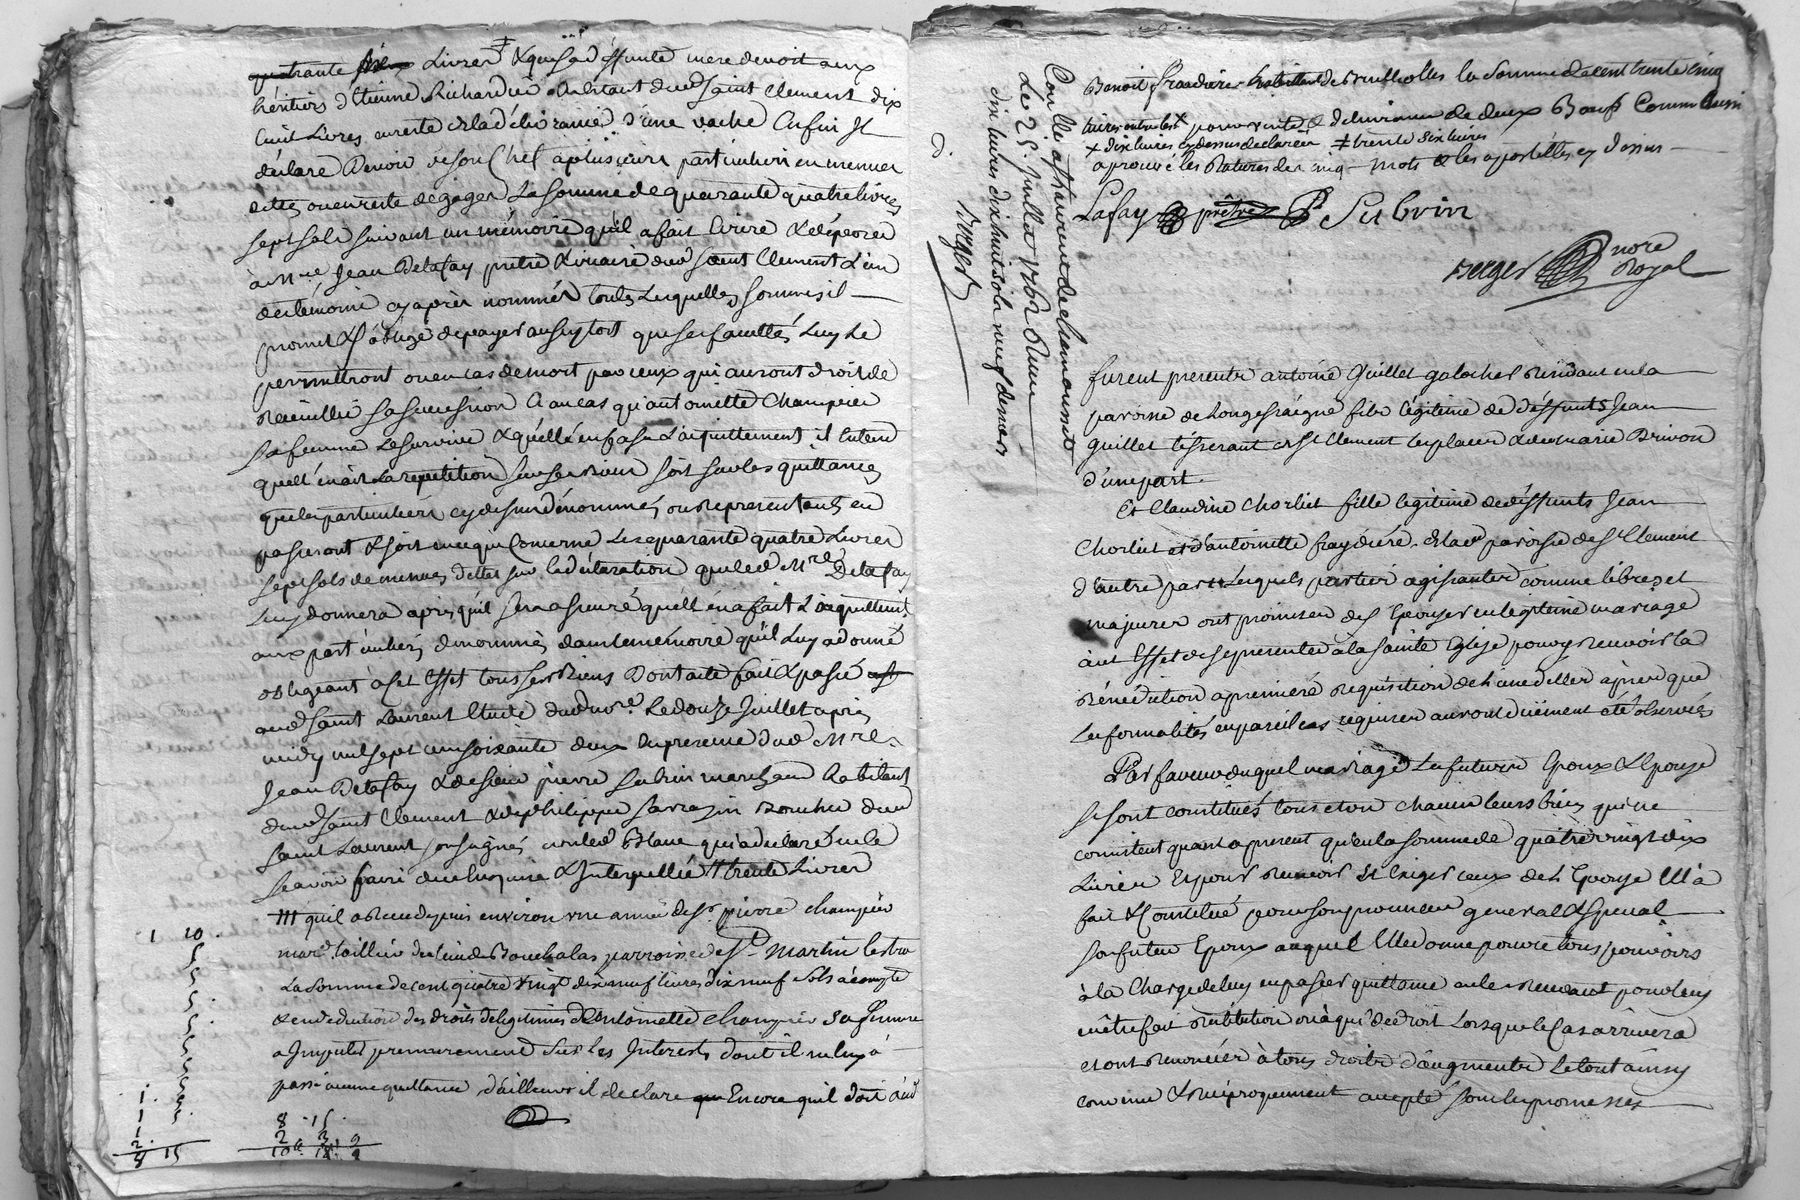 quatrante six Livres & que sad. deffunte mere devoit aux
héritiers d'Etienne Richardier habitant dud. Saint Clement dix
huit Livres en reste de la délivrance d'une vache Enfin Il
déclare Devoir de son Chef a plusieurs particuliers en menues
dettes ou en reste de gages La somme de quarante quatre livres
sept sols suivant un mémoire qu'il a fait Ecrire & déposer
à Mre Jean Delafay pretre & vicaire dud. Saint Clement L'un
des témoins cy après nommés toutes Lesquelles sommes il
promet & s'oblige de payer aussytost que ses facultés Luy Le
permettront ou en cas de mort par ceux qui auront droit de
Recueillir sa succession Et au cas qu'antoinette Champier
sa femme Le survive & qu'elle en fasse L'acquittement il Entend
quell' en ait La repetition sur ses Biens soit sur les quittances
que les particuliers cy dessus dénommés ou Representants en
passeront & soit en ce qui Concerne Les quarante quatre Livres
sept sols de menues dettes sur la déclaration que led. Mre Delafay
Luy donnera après qu'il sera assuré quell' en a fait L'acquittement
aux particuliers denommés dans le mémoire qu'il Luy a donné
obligeant à cet Effet tous ses Biens Dont acte fait & passé
aud. Saint Laurent Etude dud. nore. Le douze Juillet après
midy mil sept cent soixante deux En presence dud. Mre
Jean Delafay & de sieur pierre Subrin marchand habitants
dud. Saint Clement & de philippe Sarrazin Boucher dud.
Saint Laurent soussignés non led. Blanc qui a declaré ne le
scavoir faire de ce Enquis & Interpellé trente Livres
qu'il a Receu depuis environ une année de Sr pierre champier
mard. taillieu du lieu de Bouchalas parroisse de St. Martin lestra
La Somme de cent quatre vingt dix neuf livres dix neuf sols a compte
& en deduction des droits de legitimes d'Antoinette champier sa femme
a Imputer premierement sur les Interests dont il ne luy a
passé aucune quittance d'ailleurs il declare que Encore qu'il doit aud
1 20
8 15
2 3 9
10 18 9
Benoit fraudiere habitant de Brullioles la Somme de cent trente cinq
livres pour vente & delivrance de deux Boeufs Comm
x dix livres cy dessus declarées ≠ trente six livres
aprouvé les Ratures de cinq mots & les apostilles cy dessus
Lafay prêtre P Subrin
Berger nore Royal
Con.llé a st laurent de chamousset
Le 25 Juillet 1762 Reçu
dix livres dix huit sols neuf deniers
Berger
furent presents antoine Guillet galocher Residant en la
paroisse de Longessaigne fils légitime de deffunts Jean
Guillet tisserant de St Clement les places & de marie Brivon
d'une part.
Et Claudine Chorliet fille legitime de deffunts Jean
Chorliet et d'antoinette fraydiere de lad. paroisse de St Clement
d'autre part Lesquels parties agissantes comme libres et
majeures ont promis de s'Epouser en legitime mariage
à cet Effet de se presenter à la sainte Eglise pour y recevoir la
Bénédiction a premiere Requisition de L'une d'elles après que
Les formalités en pareil cas requises auront duement été observées
En faveur duquel mariage Les futurs Epoux & Epouse
se sont constitués tous et un chacun leurs biens qui ne
consistent quant a present qu'en la somme de quatre vingt dix
Livres Et pour Recevoir Et Exiger ceux de L'Epouse Ell' a
fait & Constitué pour son procureur general & special
son futur Epoux auquel Elle donne pour ce tous pouvoirs
à la Charge de luy en passer quittance en les Recevant pour luy
en être fait Restitution ou à qui de droit Lorsque le Cas arrivera
et ont Renoncé à tous droits d'augments Le tout ainsy
convenu & Reciproquement accepté sous les promesses